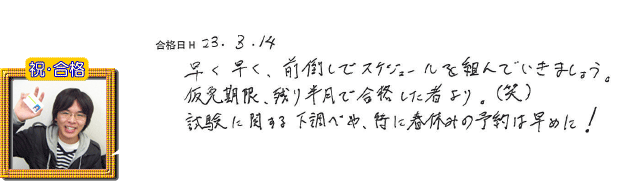 合格日 H 23.3.14
祝・合格
早く早く、前倒しでスケジュールを組んでいきましょう。
仮免期限、残り半月で合格した者より。(笑)
試験に関する下調べや、特に春休みの予約は早めに!